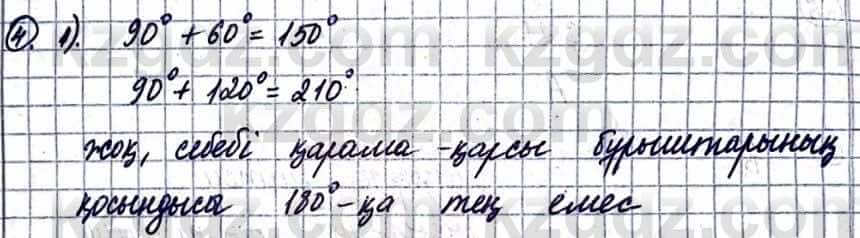 4. 1). 90° + 60° = 150°
90° + 120° = 210°
жоқ, себебі қарама-қарсы бұрыштарының
қосындысы 180°-қа тең емес